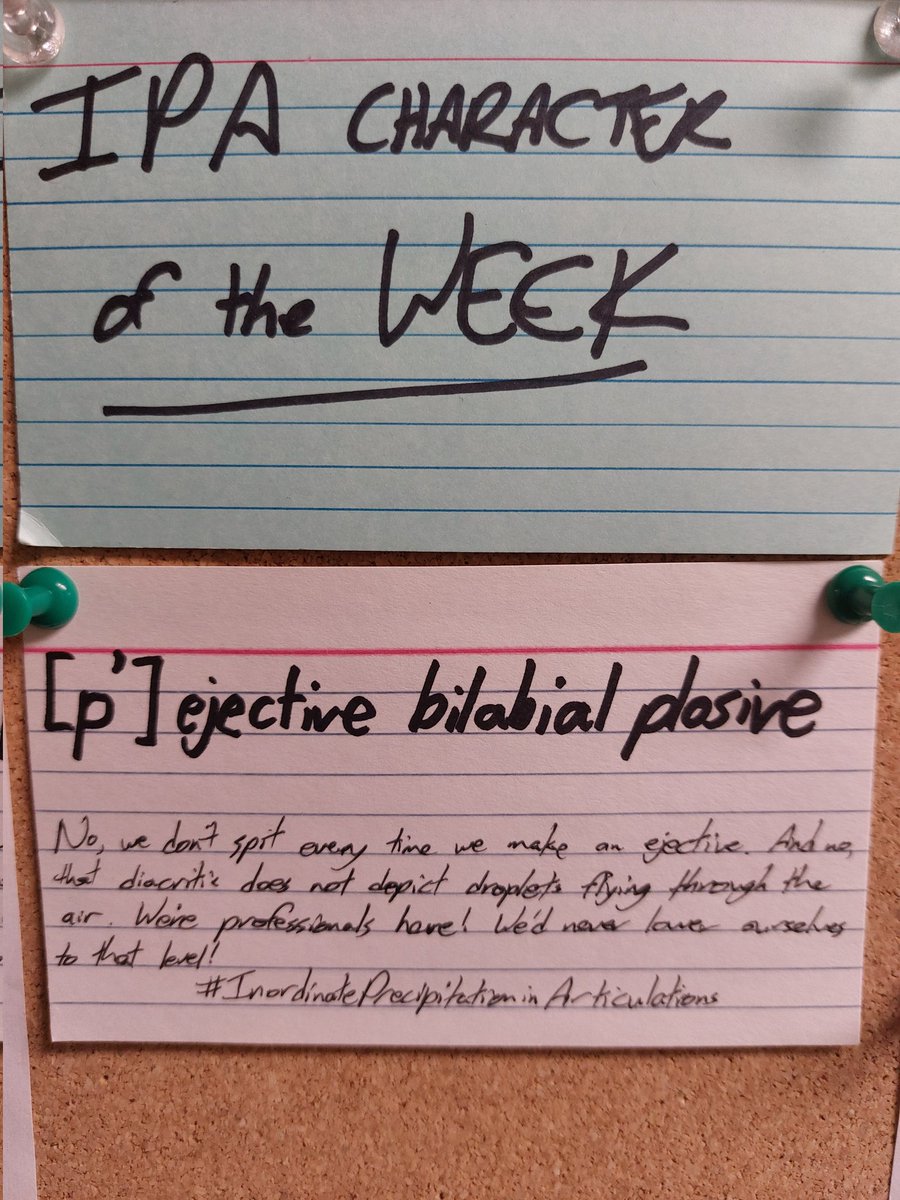 IPA CHARACTER
of the WEEK
[p'] ejective bilabial plosive
No, we don't spit every time we make an ejective. And no,
that diacritic does not depict droplets flying through the
air. We're professionals here! We'd never lower ourselves
to that level!
#InordinatePrecipitationinArticulations